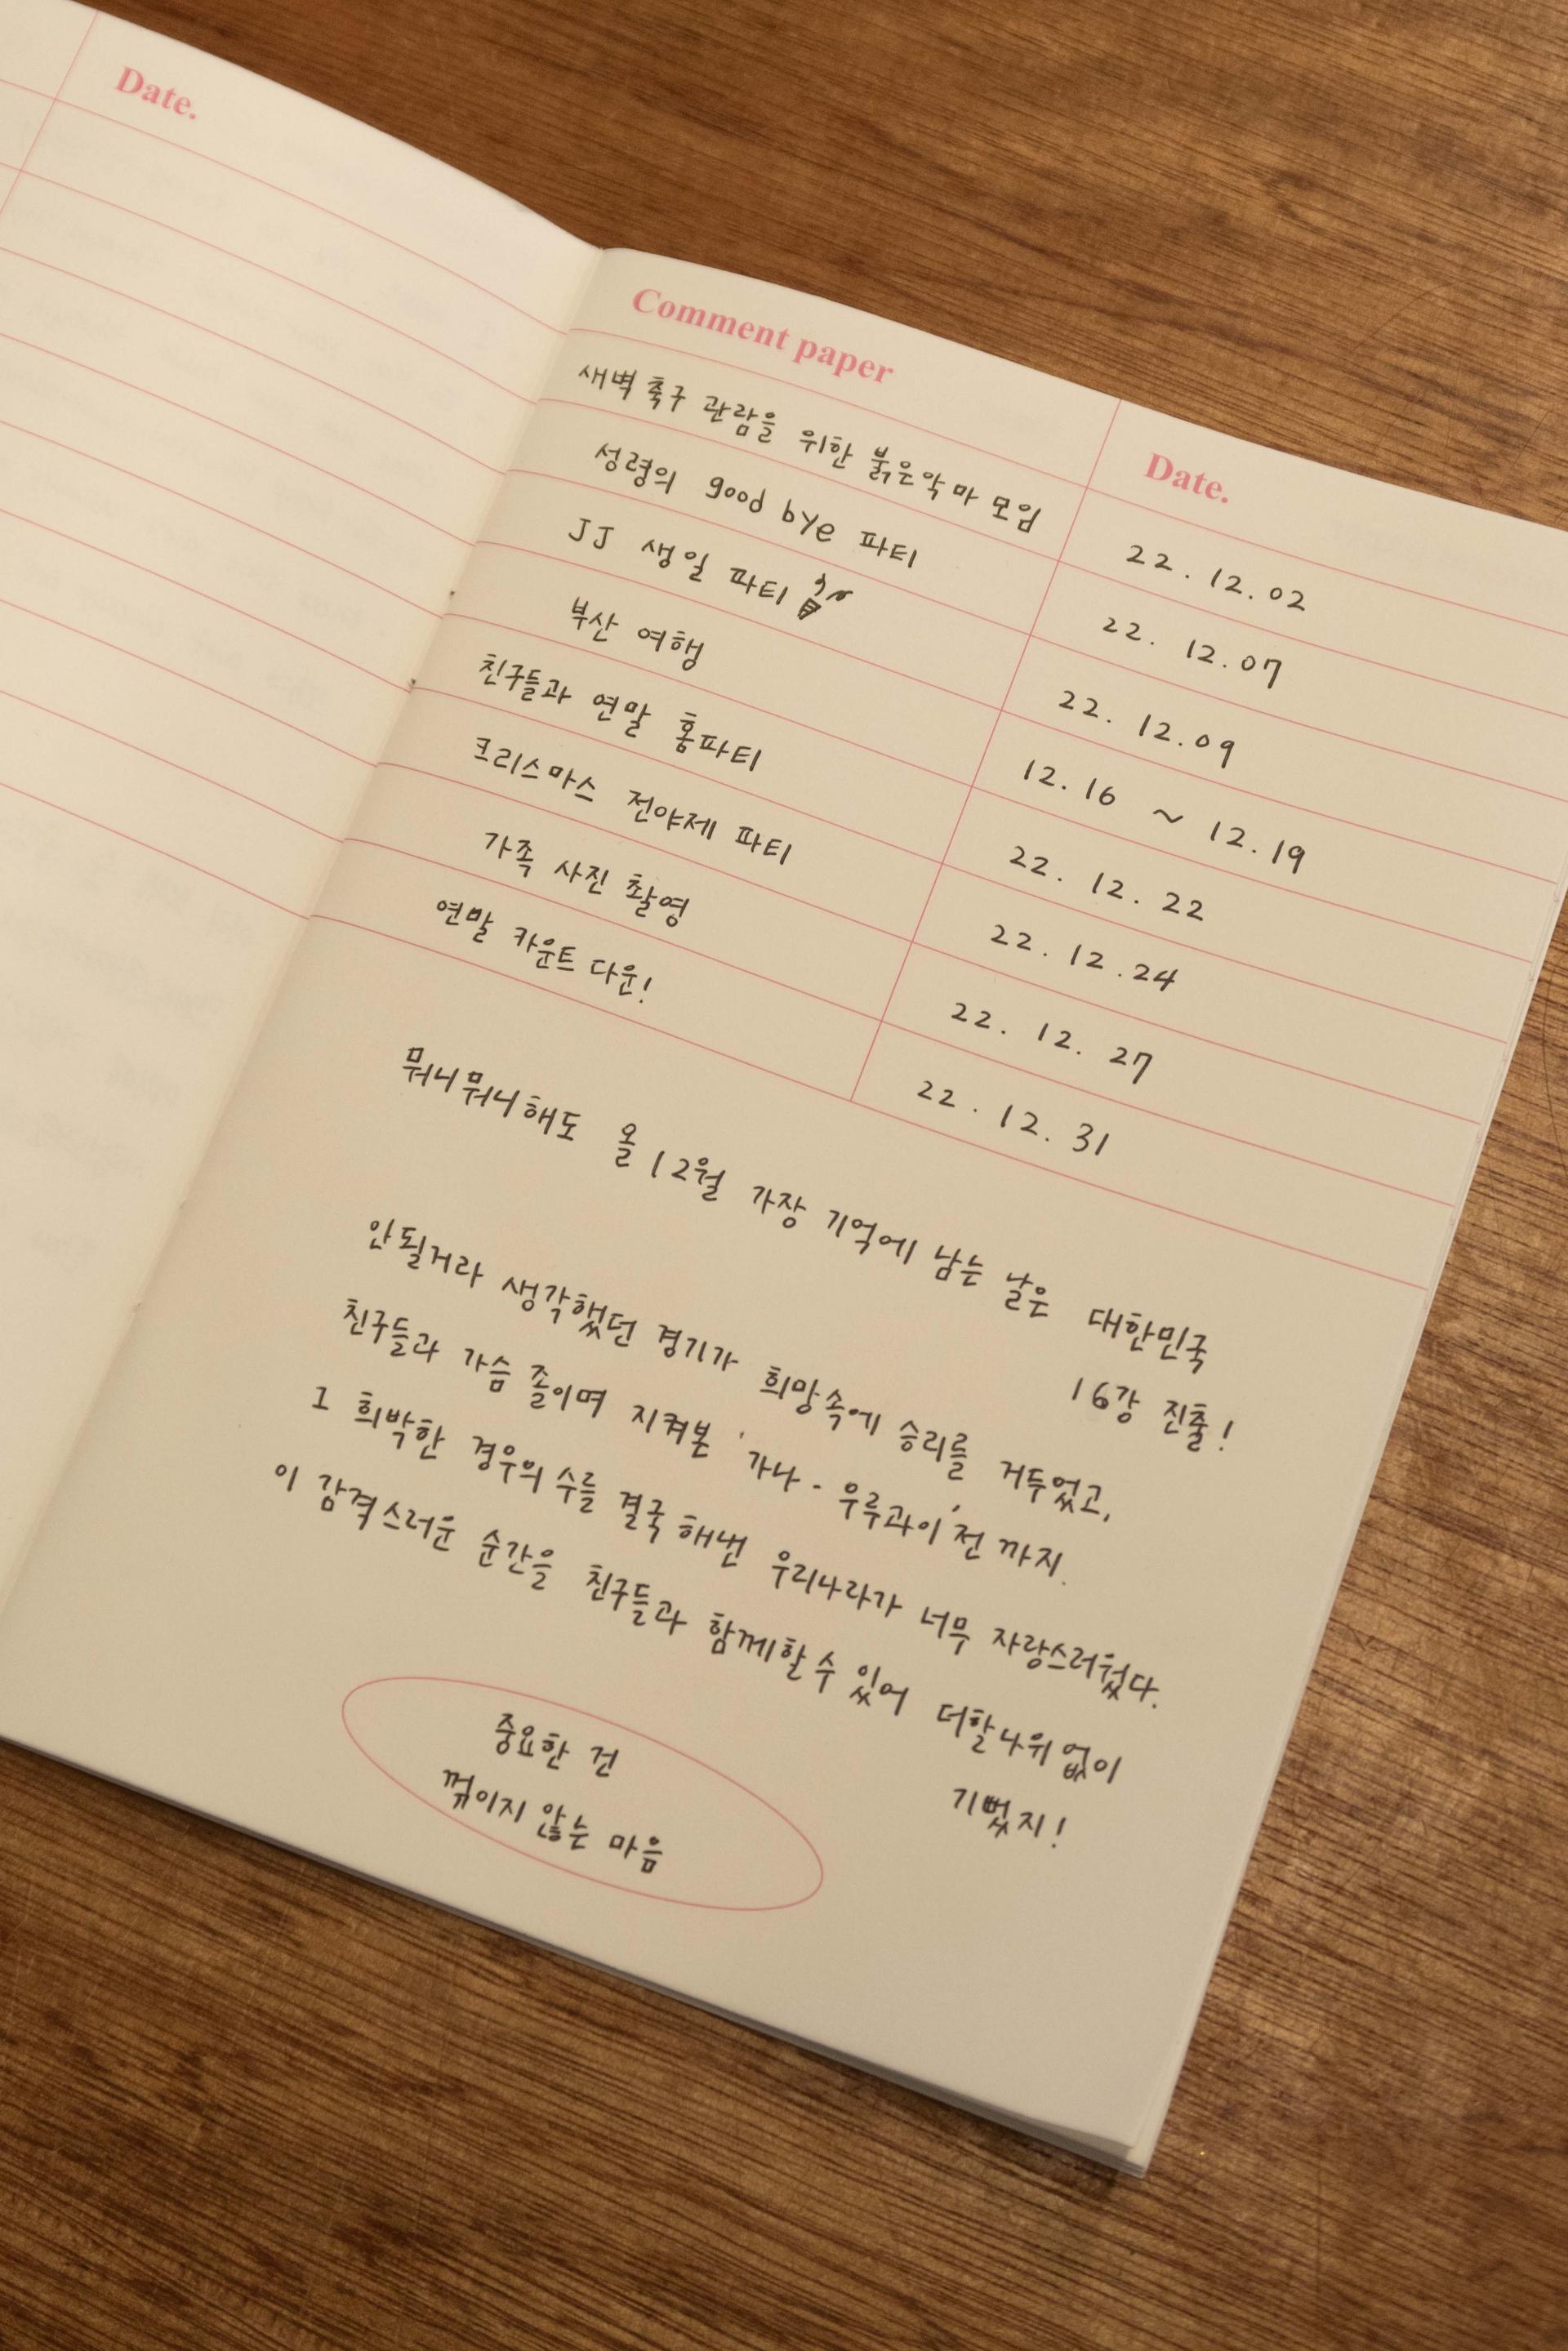 Date.
Comment paper
Date.
새벽 축구 관람을 위한 붉은악마 모임
22. 12. 02
성령의 good bye 파티
22. 12. 07
JJ 생일 파티
22. 12. 09
부산 여행
12. 16 ~ 12. 19
친구들과 연말 홈파티
22. 12. 22
크리스마스 전야제 파티
22. 12. 24
가족 사진 촬영
22. 12. 27
연말 카운트 다운!
22. 12. 31
뭐니뭐니해도 올 12월 가장 기억에 남는 날은 대한민국
16강 진출!
안될거라 생각했던 경기가 희망속에 승리를 거두었고,
친구들과 가슴 졸이며 지켜본 '가나 - 우루과이'전 까지.
그 희박한 경우의 수를 결국 해낸 우리나라가 너무 자랑스러웠다.
이 감격스러운 순간을 친구들과 함께할 수 있어 더할나위 없이
기뻤지!
중요한 건
꺾이지 않는 마음